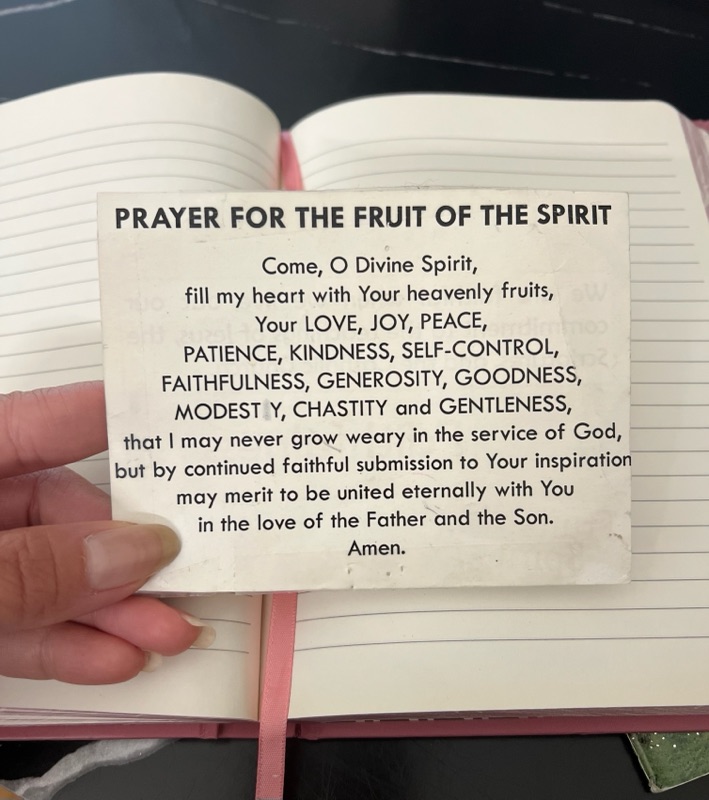 PRAYER FOR THE FRUIT OF THE SPIRIT
Come, O Divine Spirit,
fill my heart with Your heavenly fruits,
Your LOVE, JOY, PEACE,
PATIENCE, KINDNESS, SELF-CONTROL,
FAITHFULNESS, GENEROSITY, GOODNESS,
MODESTY, CHASTITY and GENTLENESS,
that I may never grow weary in the service of God,
but by continued faithful submission to Your inspiration
may merit to be united eternally with You
in the love of the Father and the Son.
Amen.